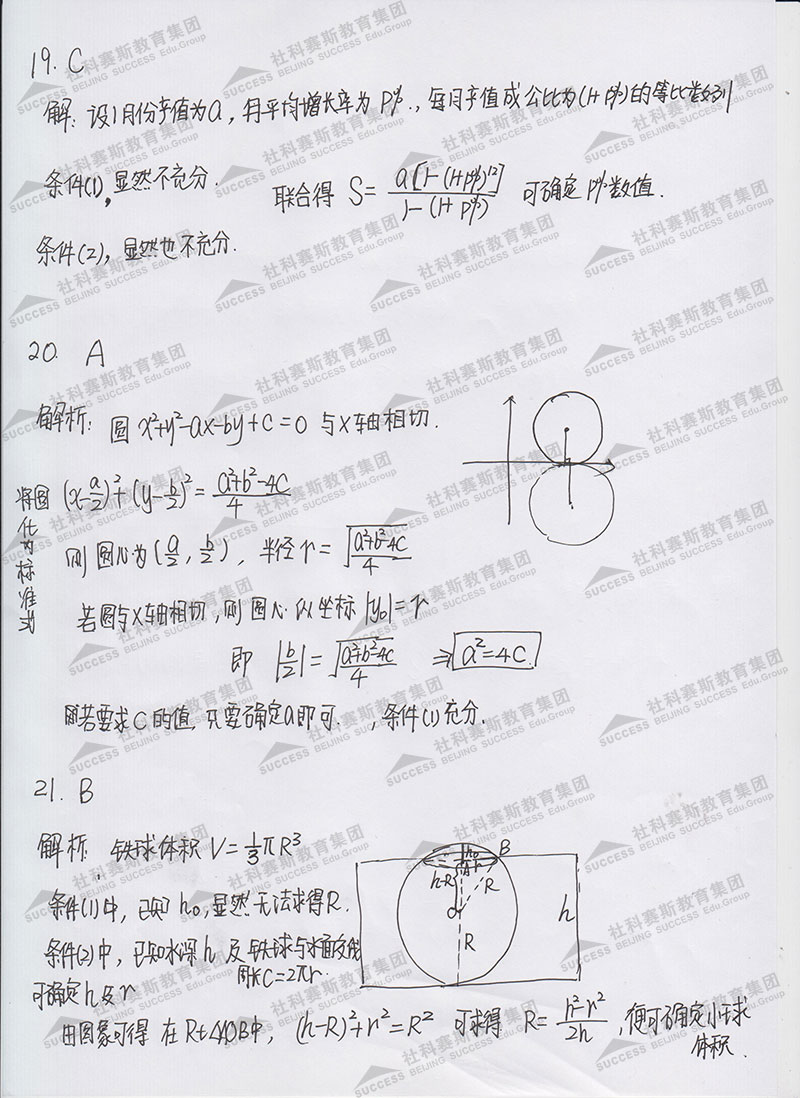 19. C
解: 设1月份产值为a, 月平均增长率为P%., 每月产值成公比为(1+P%)的等比数列
条件(1), 显然不充分.
联合得 S= a[1-(1+P%)^12] / 1-(1+P%) 可确定P%数值.
条件(2), 显然也不充分.
20. A
解析: 圆 x²+y²-ax-by+c=0 与X轴相切.
将圆化为标准式
(x-a/2)²+(y-b/2)²=(a²+b²-4c)/4
则圆心为(a/2, b/2), 半径r=√(a²+b²-4c)/4
若圆与X轴相切, 则圆心纵坐标|y₀|=r
即 |b/2|=√(a²+b²-4c)/4 ⇒ a²=4c.
若要求C的值, 只要确定a即可. , 条件(1)充分.
21. B
解析, 铁球体积 V=1/3πR³
条件(1)中, 已知h₀, 显然无法求得R.
条件(2)中, 已知水深h 及铁球与水面交线
周长C=2πr.
可确定h及r
由图象可得 在Rt△AOB中, (h-R)²+r²=R² 可求得 R= (h²-r²)/2h , 便可确定小球
体积.
h₀
B
A
r
h-R
R
O
R
h
社科赛斯教育集团
SUCCESS BEIJING SUCCESS Edu.Group